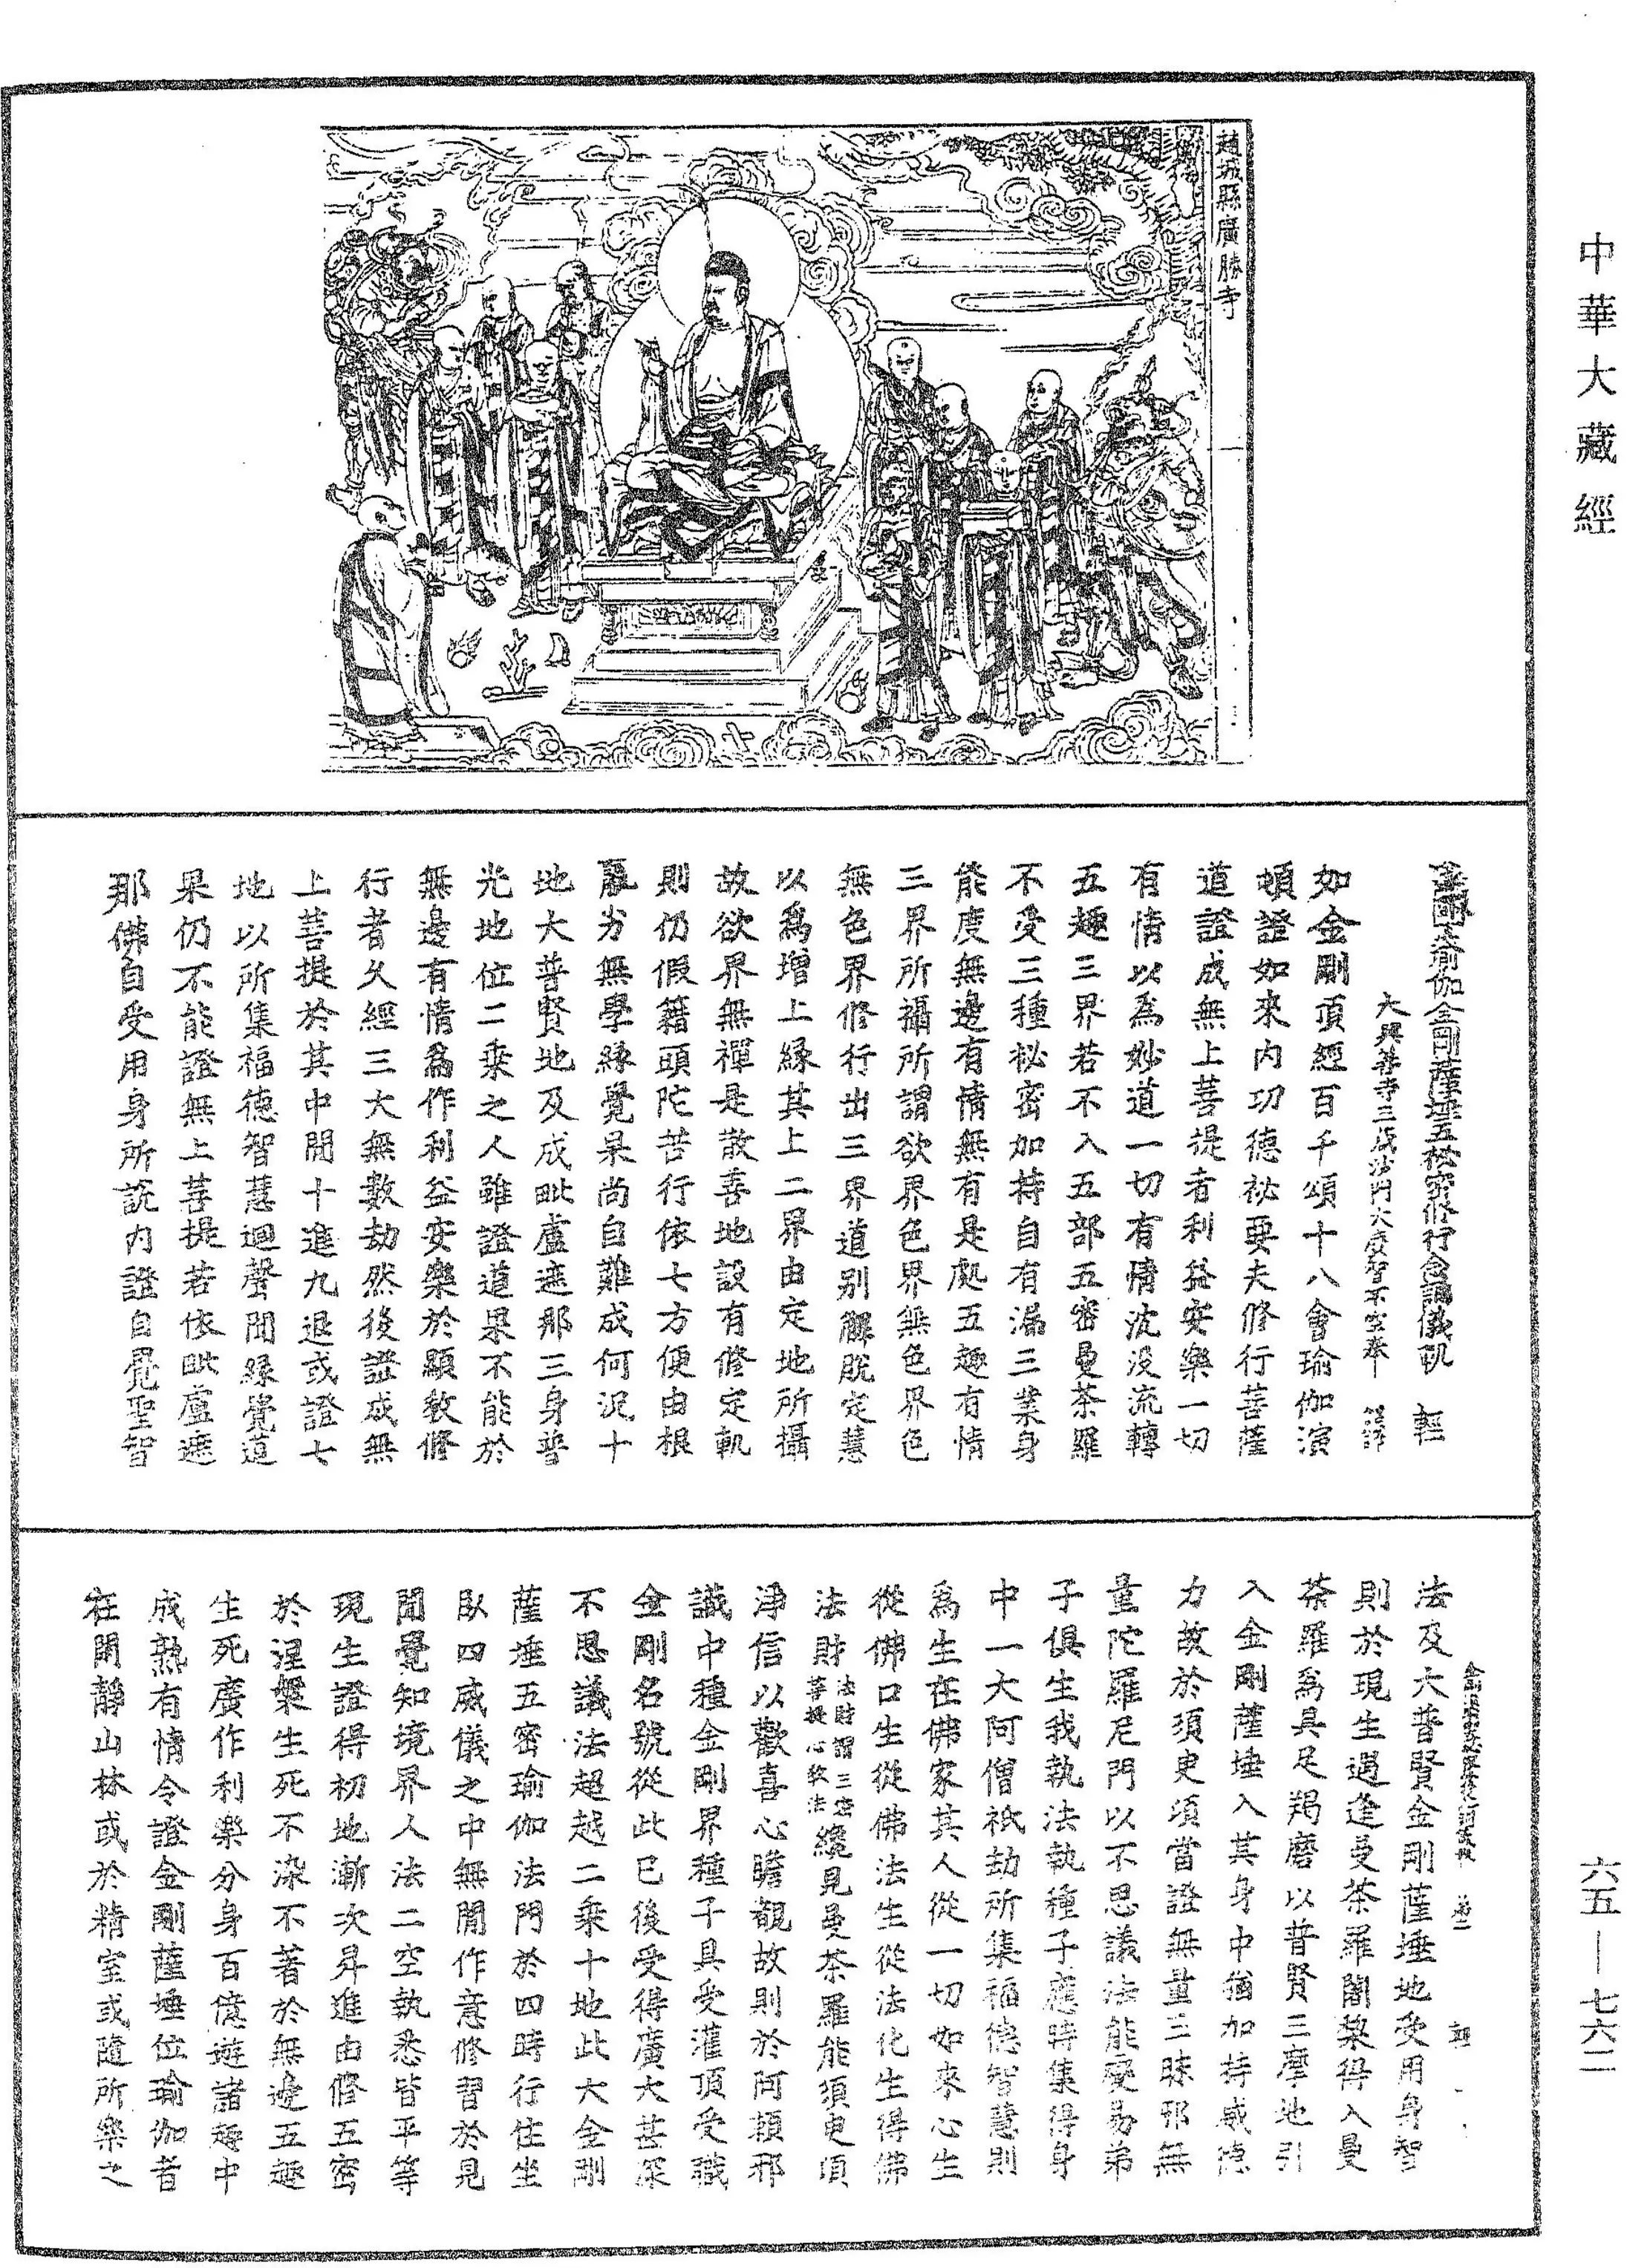 中華大藏經
趙城縣廣勝寺
金剛頂瑜伽金剛薩埵五秘密修行念誦儀軌 輕
大興善寺三藏沙門大廣智不空奉 詔譯
如金剛頂經百千頌十八會瑜伽演
頓證如來内功德祕要夫修行菩薩
道證成無上菩提者利益安樂一切
有情以爲妙道一切有情沈没流轉
五趣三界若不入五部五密曼茶羅
不受三種秘密加持自有漏三業身
能度無邊有情無有是處五趣有情
三界所攝所謂欲界色界無色界色
無色界修行出三界道别解脱定慧
以爲增上緣其上二界由定地所攝
故欲界無禪是散善地設有修定軌
則仍假籍頭陀苦行依七方便由根
羸劣無學緣覺果尚自難成何況十
地大普賢地及成毗盧遮那三身普
光地位二乘之人雖證道果不能於
無邊有情爲作利益安樂於顯教修
行者久經三大無數劫然後證成無
上菩提於其中間十進九退或證七
地以所集福德智慧迴聲聞緣覺道
果仍不能證無上菩提若依毗盧遮
那佛自受用身所説内證自覺聖智
法及大普賢金剛薩埵地受用身智
則於現生遇逢曼茶羅闍梨得入曼
茶羅爲具足羯磨以普賢三摩地引
入金剛薩埵入其身中猶加持威德
力故於須臾頃當證無量三昧邪無
量陀羅尼門以不思議法能變易弟
子俱生我執法執種子應時集得身
中一大阿僧祇劫所集福德智慧則
爲生在佛家其人從一切如來心生
從佛口生從佛法生從法化生得佛
法財法財謂三密菩提心教法纔見曼茶羅能須臾頃
淨信以歡喜心瞻覩故則於阿頼邪
識中種金剛界種子具受灌頂受職
金剛名號從此已後受得廣大甚深
不思議法超越二乘十地此大金剛
薩埵五密瑜伽法門於四時行住坐
臥四威儀之中無間作意修習於見
聞覺知境界人法二空執悉皆平等
現生證得初地漸次昇進由修五密
於涅槃生死不染不著於無邊五趣
生死廣作利樂分身百億遊諸趣中
成熟有情令證金剛薩埵位瑜伽者
在閑靜山林或於精室或隨所樂之
六五—七六二